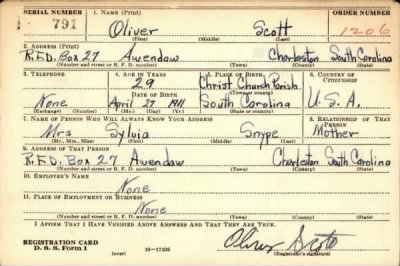 SERIAL NUMBER 1. NAME (Print) ORDER NUMBER
791 Oliver Scott 1206
(First) (Middle) (Last)
2. ADDRESS (Print)
R.F.D. Box 27 Awendaw Charleston South Carolina
(Number and street or R. F. D. number) (Town) (County) (State)
3. TELEPHONE 4. AGE IN YEARS 5. PLACE OF BIRTH 6. COUNTRY OF CITIZENSHIP
29 Christ Church Parish
DATE OF BIRTH (Town or county)
None April 27 1911 South Carolina U.S.A.
(Exchange) (Number) (Mo.) (Day) (Yr.) (State or country)
7. NAME OF PERSON WHO WILL ALWAYS KNOW YOUR ADDRESS 8. RELATIONSHIP OF THAT PERSON
Mrs Sylvia Snype Mother
(Mr., Mrs., Miss) (First) (Middle) (Last)
9. ADDRESS OF THAT PERSON
R.F.D. Box 27 Awendaw Charleston South Carolina
(Number and street or R. F. D. number) (Town) (County) (State)
10. EMPLOYER'S NAME
None
11. PLACE OF EMPLOYMENT OR BUSINESS
None
(Number and street or R. F. D. number) (Town) (County) (State)
I AFFIRM THAT I HAVE VERIFIED ABOVE ANSWERS AND THAT THEY ARE TRUE.
REGISTRATION CARD
D. S. S. Form 1 (over) 16—17105 Oliver Scott
(Registrant's signature)